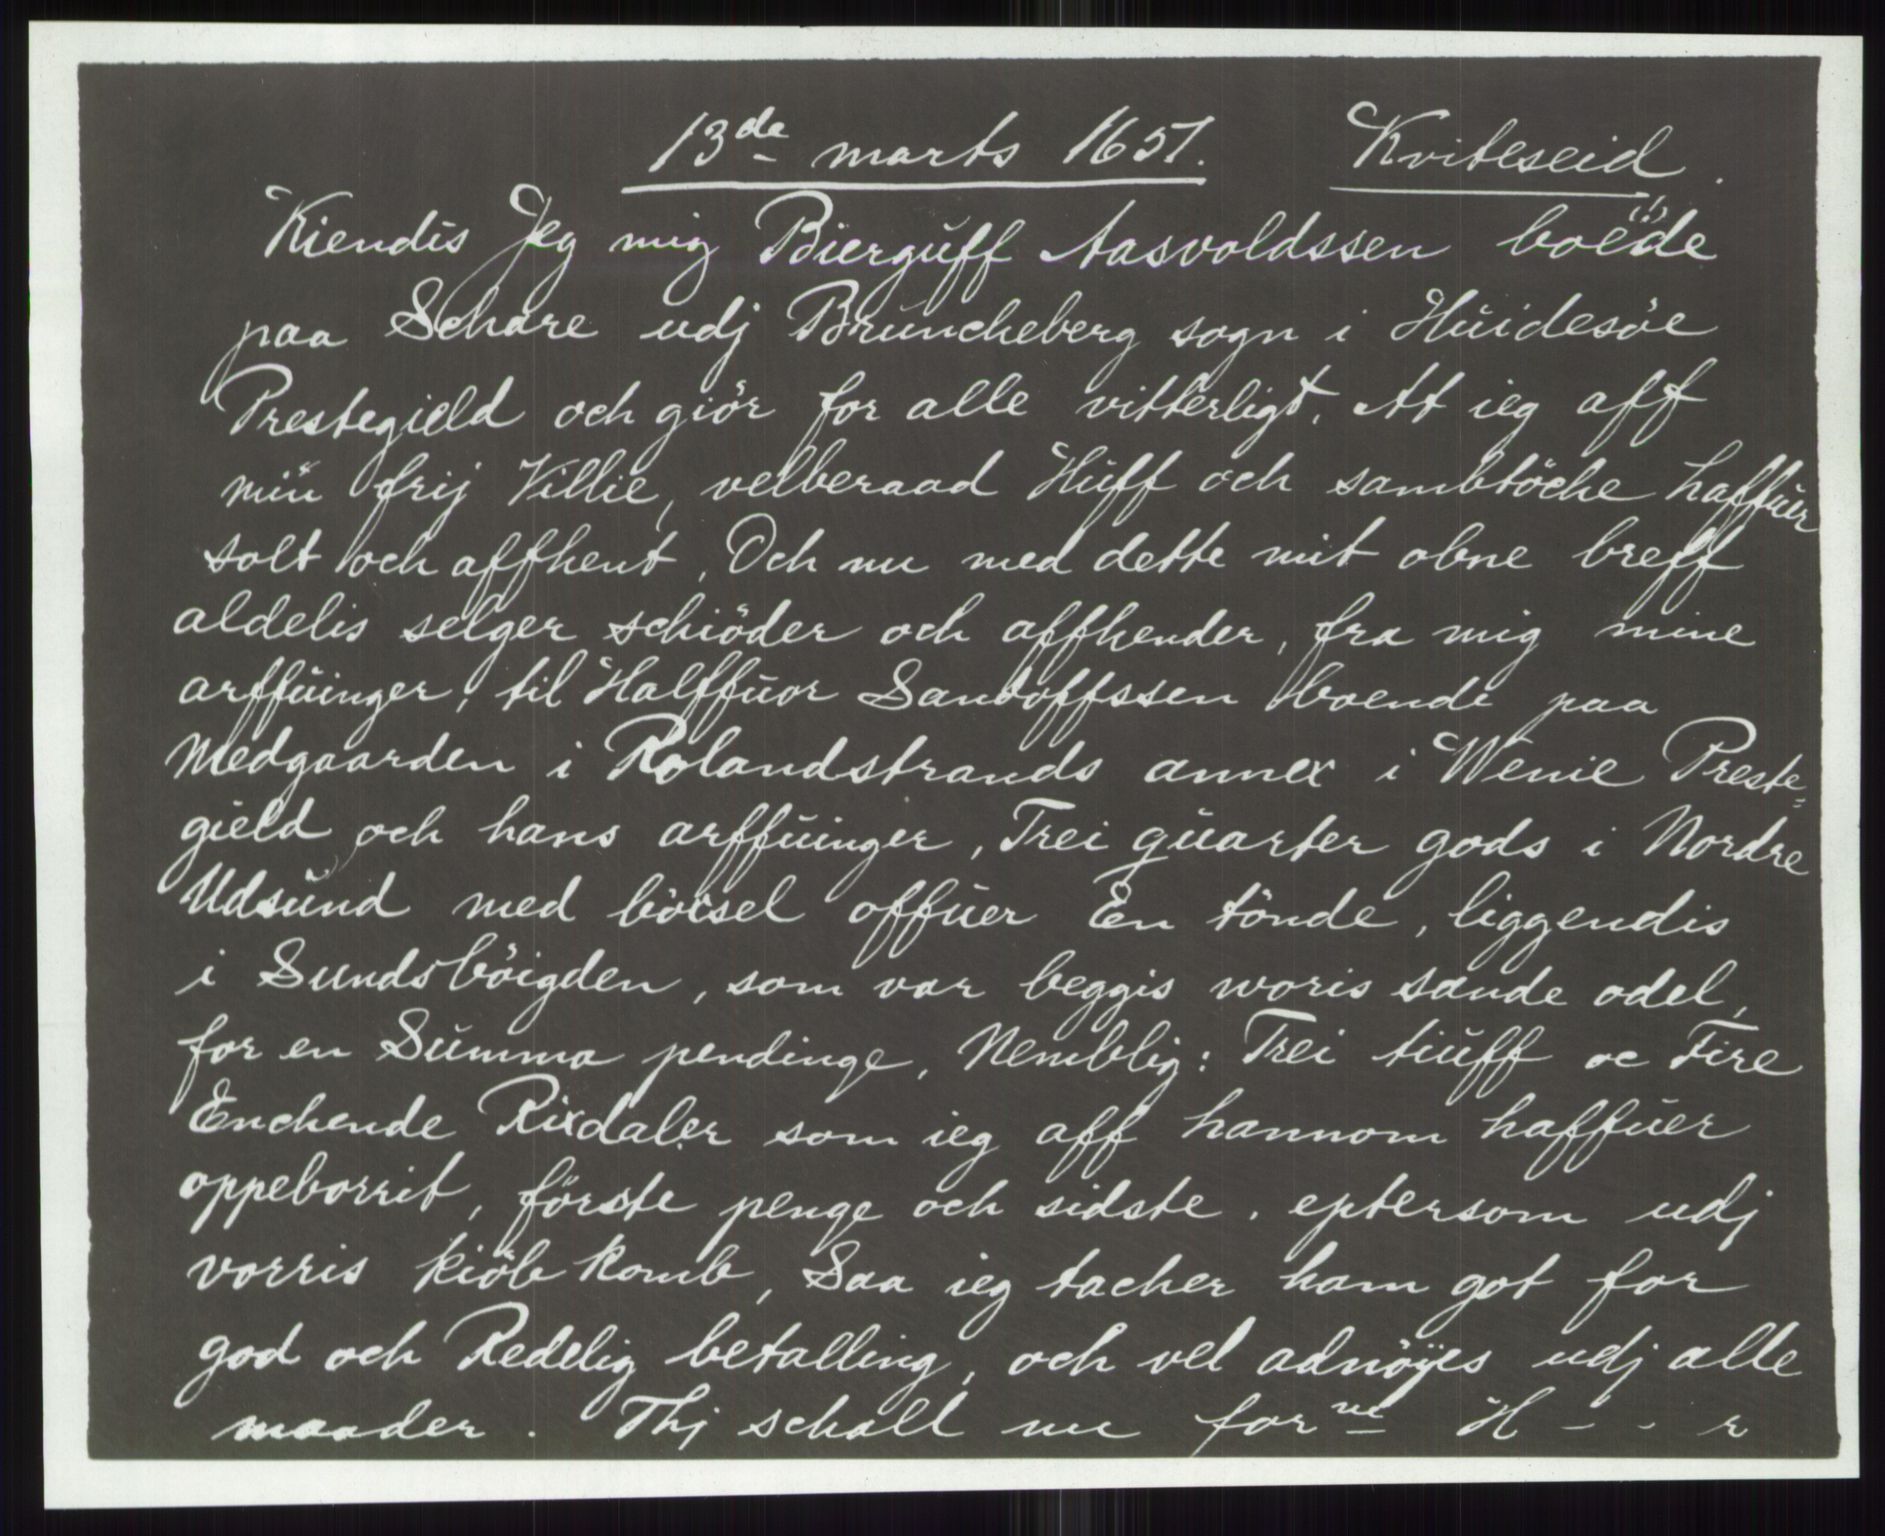 13de marts 1651. Kviteseid.
Kiendis Jeg mig Bierguff Aasvoldssen boëde
paa Schare udj Bruncheberg sogn i Huidesöe
Prestegield och giör for alle vitterligt, At ieg aff
min frij Villie, velberaad Huff och sambtöche haffuer
solt och affhent, Och nu med dette mit obne breff
aldelis selger schiöder och affhender, fra mig mine
arffuinger, til Halffuor Sandoffssen boende paa
Medgaarden i Rolandstrands annex i Wenie Preste=
gield och hans arffuinger, Trei quarter gods i Nordre
Udsund med böcsel offuer En tönde, liggendis
i Sundsböigden, som var beggis woris sande odel,
for en Summa pendinge, Nemblig: Trei tiuff oc Fire
Enchende Rixdaler som ieg aff hannom haffuer
oppeborrit, förste penge och sidste, eptersom udj
vorris kiöb komb, Saa ieg tacher ham got for
god och Redelig betalling, och vel adnöyes udj alle
maader. Thj schall nu forne H - - r